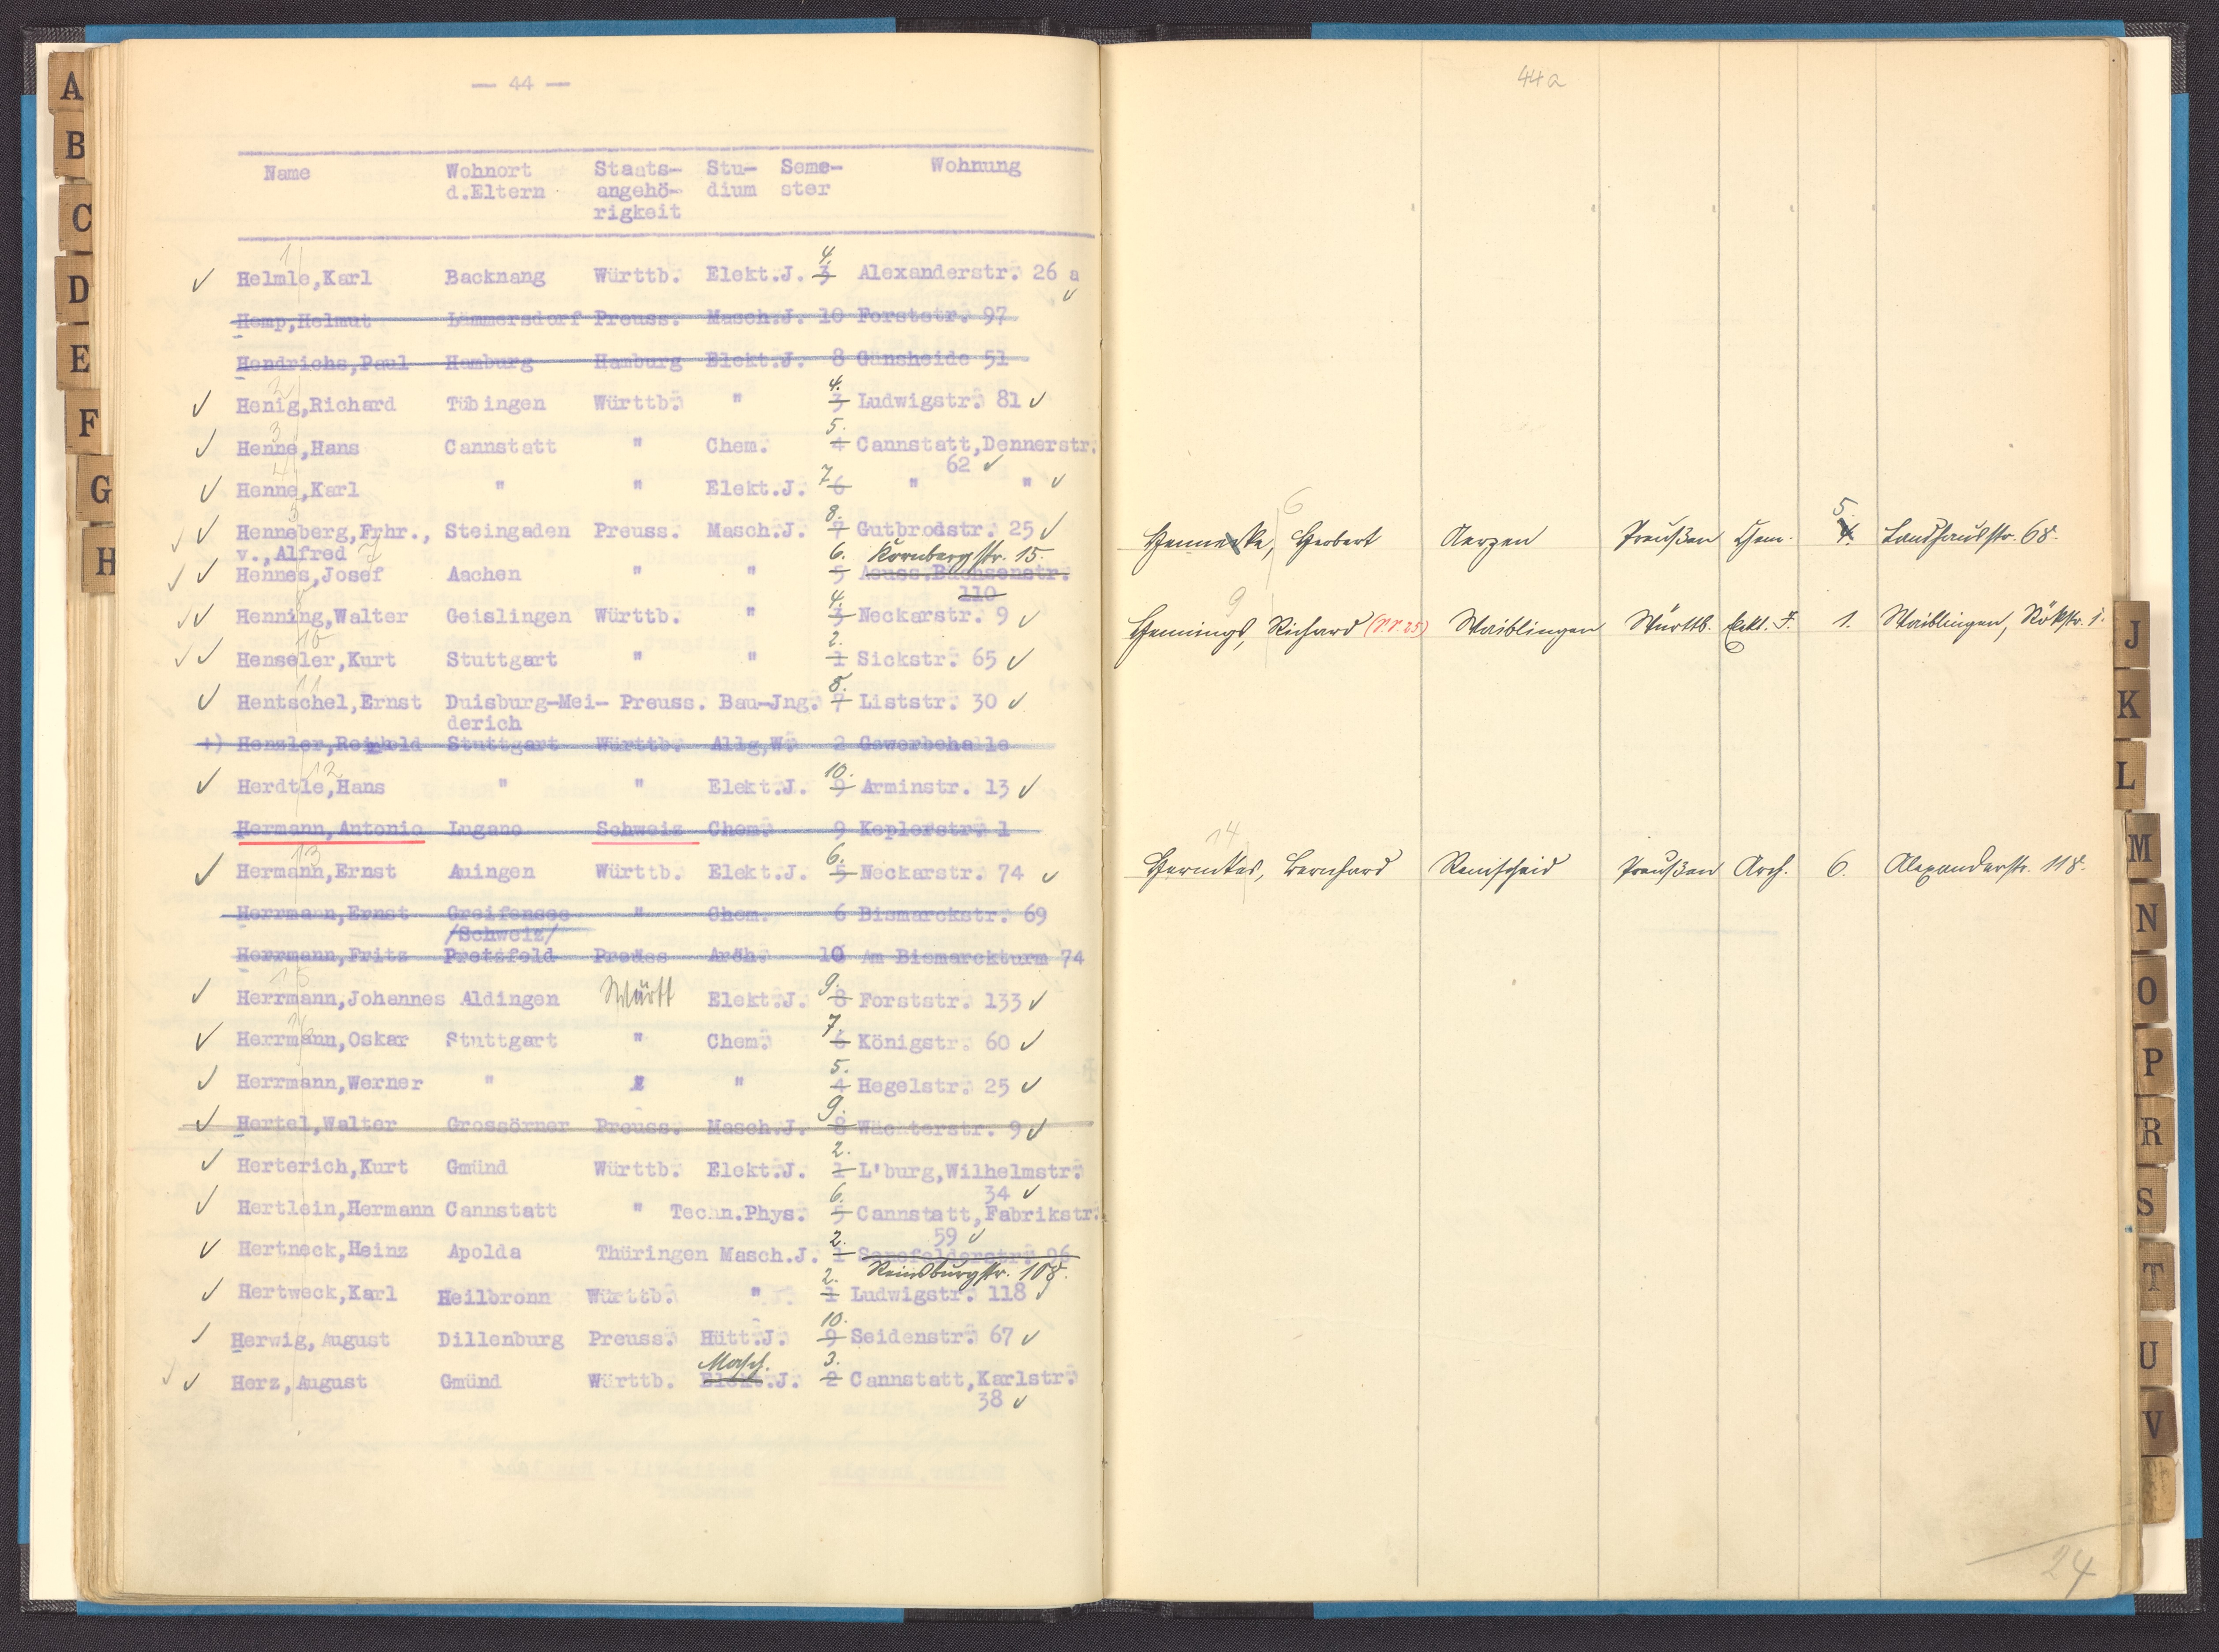 — 44 —
Name Wohnort Staats- Stu- Seme- Wohnung
d.Eltern angehö- dium ster
rigkeit
1
4.
✓ Helmle,Karl Backnang Württb. Elekt.J. 3 Alexanderstr. 26 a
✓
Hemp,Helmut Lämmersdorf Preuss. Masch.J. 10 Forststr. 97
Hendrichs,Paul Hamburg Hamburg Elekt.J. 8 Gänsheide 51
2 4.
✓ Henig,Richard Tübingen Württb. " 3 Ludwigstr. 81 ✓
3 5.
✓ Henne,Hans Cannstatt " Chem. 4 Cannstatt,Dennerstr.
62 ✓
4 7
✓ Henne,Karl " " Elekt.J. 6 " " ✓
5 8.
✓ ✓ Henneberg,Frhr., Steingaden Preuss. Masch.J. 7 Gutbrodstr. 25 ✓
v.,Alfred 7 6. Kornbergstr. 15.
✓ ✓ Hennes,Josef Aachen " " 5 Aeuss.Büchsenstr.
110
8 4.
✓ ✓ Henning,Walter Geislingen Württb. " 3 Neckarstr. 9 ✓
10 2.
✓ ✓ Henseler,Kurt Stuttgart " " 1 Sickstr. 65 ✓
11 8.
✓ Hentschel,Ernst Duisburg-Mei- Preuss. Bau-Jng. 7 Liststr. 30 ✓
derich
+) Henzler,Reinhold Stuttgart Württb. Allg,W. 2 Gewerbehalle
12 10.
✓ Herdtle,Hans " " Elekt.J. 9 Arminstr. 13 ✓
Hermann,Antonio Lugano Schweiz Chem. 9 Keplerstr. 1
13 6.
✓ Hermann,Ernst Auingen Württb. Elekt.J. 5 Neckarstr. 74 ✓
Herrmann,Ernst Greifensee " Chem. 6 Bismarckstr. 69
/Schweiz/
Herrmann,Fritz Pretzfeld Preuss Arch. 10 Am Bismarckturm 74
15 9.
✓ Herrmann,Johannes Aldingen Württ Elekt.J. 8 Forststr. 133 ✓
16 7.
✓ Herrmann,Oskar Stuttgart " Chem. 6 Königstr. 60 ✓
5.
✓ Herrmann,Werner " " " 4 Hegelstr. 25 ✓
9.
✓ Hertel,Walter Grossörner Preuss. Masch.J. 8 Wächterstr. 9 ✓
2.
✓ Herterich,Kurt Gmünd Württb. Elekt.J. 1 L'burg,Wilhelmstr.
34 ✓
6.
✓ Hertlein,Hermann Cannstatt " Techn.Phys. 5 Cannstatt,Fabrikstr.
59 ✓
2.
✓ Hertneck,Heinz Apolda Thüringen Masch.J. 1 Senefelderstr. 96
2. Reinsburgstr. 108.
✓ Hertweck,Karl Heilbronn Württb. " 1 Ludwigstr. 118 ✓
10.
✓ Herwig,August Dillenburg Preuss. Hütt.J. 9 Seidenstr. 67 ✓
Masch. 3.
✓ ✓ Herz,August Gmünd Württb. Elekt.J. 2 Cannstatt,Karlstr.
38 ✓
44a
6 5.
Hennecke, Herbert Aerzen Preußen Chem. 4. Landhausstr. 68.
9
Hennings, Richard Waiblingen Württb. Elekt. J. 1. Waiblingen,
14
Bernhard Remscheid Preußen Arch. 6. Alexanderstr. 118.
24
A
B
C
D
E
F
G
H
J
K
L
M
N
O
P
R
S
T
U
V